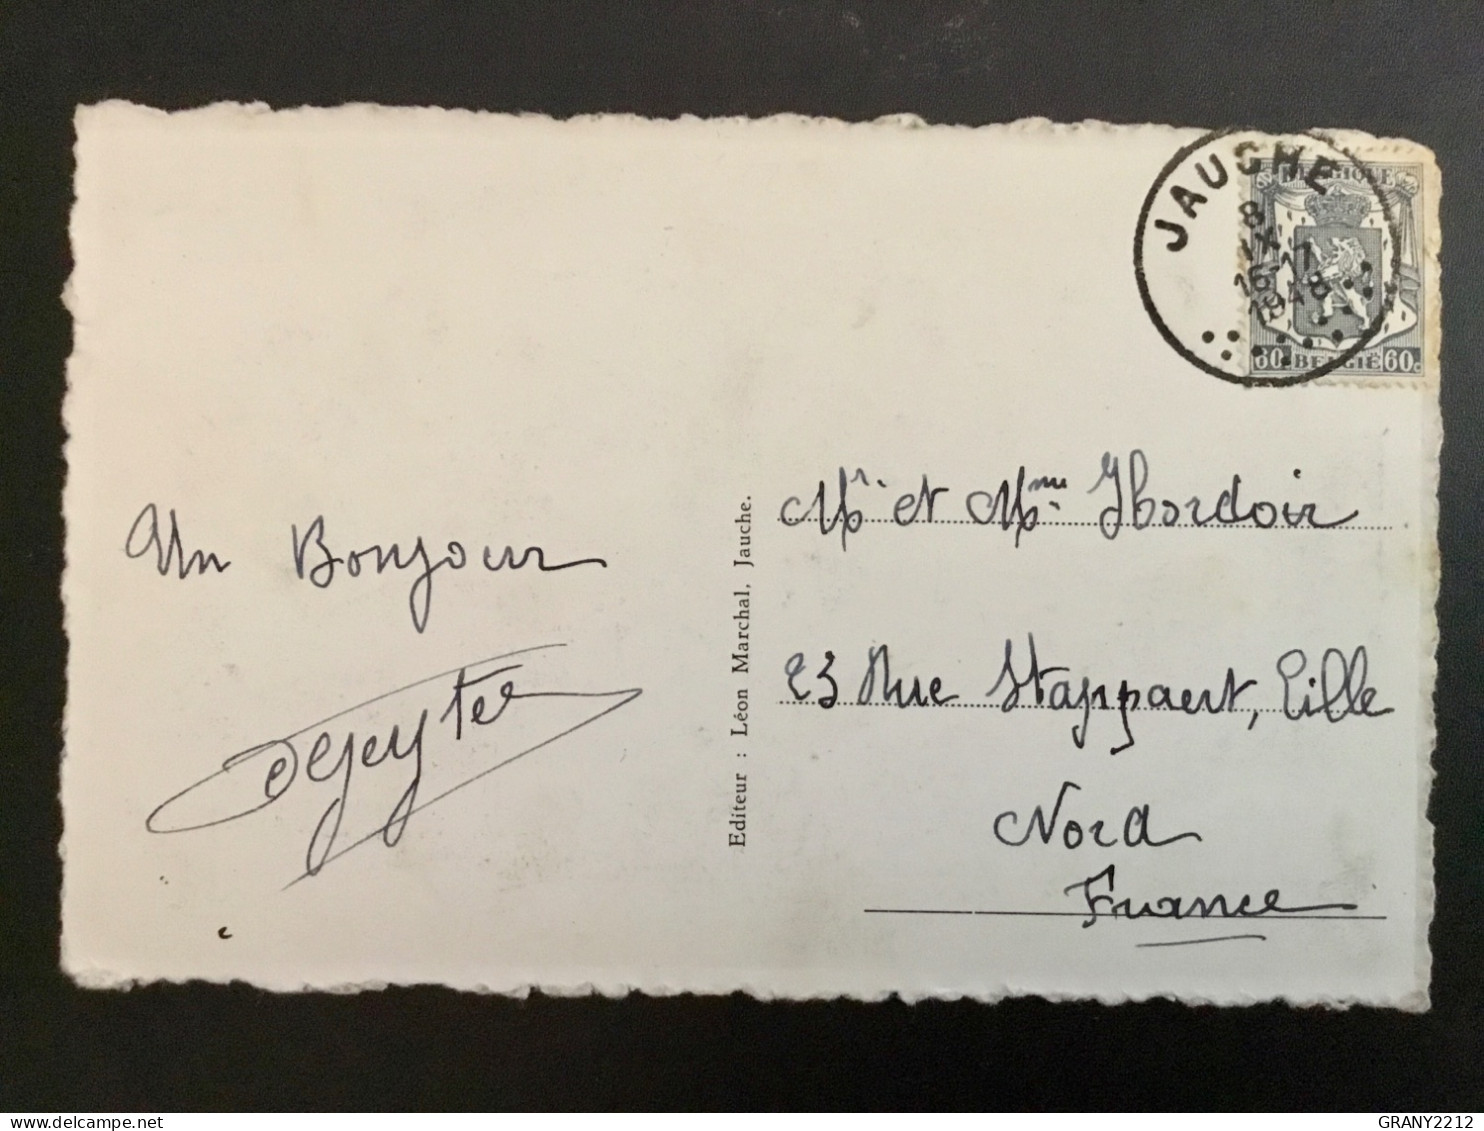 JAUCHE
8
IX
16-17
1948
BELGIQUE
60 BELGIË 60c
Un Bonjour
Dejeyter
Editeur : Léon Marchal, Jauche.
Mr. et Mme Hordoir
23 Rue Stappaert, Lille
Nord
France
GRANY2212
delcampe.net